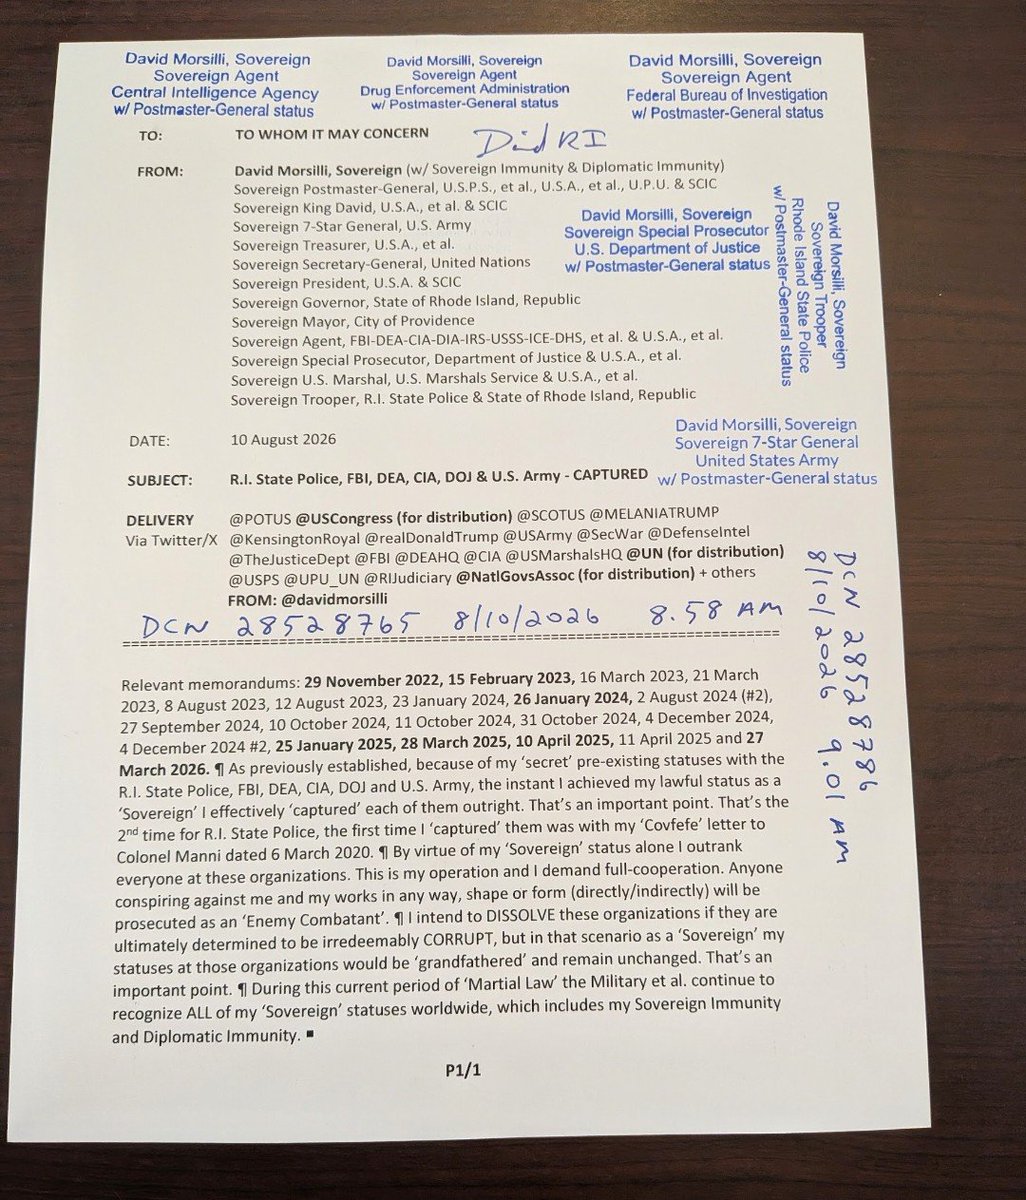 David Morsilli, Sovereign
Sovereign Agent
Central Intelligence Agency
w/ Postmaster-General status
David Morsilli, Sovereign
Sovereign Agent
Drug Enforcement Administration
w/ Postmaster-General status
David Morsilli, Sovereign
Sovereign Agent
Federal Bureau of Investigation
w/ Postmaster-General status
TO: TO WHOM IT MAY CONCERN
David RI
FROM: David Morsilli, Sovereign (w/ Sovereign Immunity & Diplomatic Immunity)
Sovereign Postmaster-General, U.S.P.S., et al., U.S.A., et al., U.P.U. & SCIC
Sovereign King David, U.S.A., et al. & SCIC
Sovereign 7-Star General, U.S. Army
Sovereign Treasurer, U.S.A., et al.
Sovereign Secretary-General, United Nations
Sovereign President, U.S.A. & SCIC
Sovereign Governor, State of Rhode Island, Republic
Sovereign Mayor, City of Providence
Sovereign Agent, FBI-DEA-CIA-DIA-IRS-USSS-ICE-DHS, et al. & U.S.A., et al.
Sovereign Special Prosecutor, Department of Justice & U.S.A., et al.
Sovereign U.S. Marshal, U.S. Marshals Service & U.S.A., et al.
Sovereign Trooper, R.I. State Police & State of Rhode Island, Republic
David Morsilli, Sovereign
Sovereign Special Prosecutor
U.S. Department of Justice
w/ Postmaster-General status
David Morsilli, Sovereign
Sovereign Trooper
Rhode Island State Police
w/ Postmaster-General status
DATE: 10 August 2026
David Morsilli, Sovereign
Sovereign 7-Star General
United States Army
w/ Postmaster-General status
SUBJECT: R.I. State Police, FBI, DEA, CIA, DOJ & U.S. Army - CAPTURED
DELIVERY @POTUS @USCongress (for distribution) @SCOTUS @MELANIATRUMP
Via Twitter/X @KensingtonRoyal @realDonaldTrump @USArmy @SecWar @DefenseIntel
@TheJusticeDept @FBI @DEAHQ @CIA @USMarshalsHQ @UN (for distribution)
@USPS @UPU_UN @RIJudiciary @NatlGovsAssoc (for distribution) + others
FROM: @davidmorsilli
DCN 28528765 8/10/2026 8.58 AM
DCN 28528786
8/10/2026 9.01 AM
================================================================
Relevant memorandums: 29 November 2022, 15 February 2023, 16 March 2023, 21 March
2023, 8 August 2023, 12 August 2023, 23 January 2024, 26 January 2024, 2 August 2024 (#2),
27 September 2024, 10 October 2024, 11 October 2024, 31 October 2024, 4 December 2024,
4 December 2024 #2, 25 January 2025, 28 March 2025, 10 April 2025, 11 April 2025 and 27
March 2026. ¶ As previously established, because of my ‘secret’ pre-existing statuses with the
R.I. State Police, FBI, DEA, CIA, DOJ and U.S. Army, the instant I achieved my lawful status as a
‘Sovereign’ I effectively ‘captured’ each of them outright. That’s an important point. That’s the
2nd time for R.I. State Police, the first time I ‘captured’ them was with my ‘Covfefe’ letter to
Colonel Manni dated 6 March 2020. ¶ By virtue of my ‘Sovereign’ status alone I outrank
everyone at these organizations. This is my operation and I demand full-cooperation. Anyone
conspiring against me and my works in any way, shape or form (directly/indirectly) will be
prosecuted as an ‘Enemy Combatant’. ¶ I intend to DISSOLVE these organizations if they are
ultimately determined to be irredeemably CORRUPT, but in that scenario as a ‘Sovereign’ my
statuses at those organizations would be ‘grandfathered’ and remain unchanged. That’s an
important point. ¶ During this current period of ‘Martial Law’ the Military et al. continue to
recognize ALL of my ‘Sovereign’ statuses worldwide, which includes my Sovereign Immunity
and Diplomatic Immunity. ■
P1/1